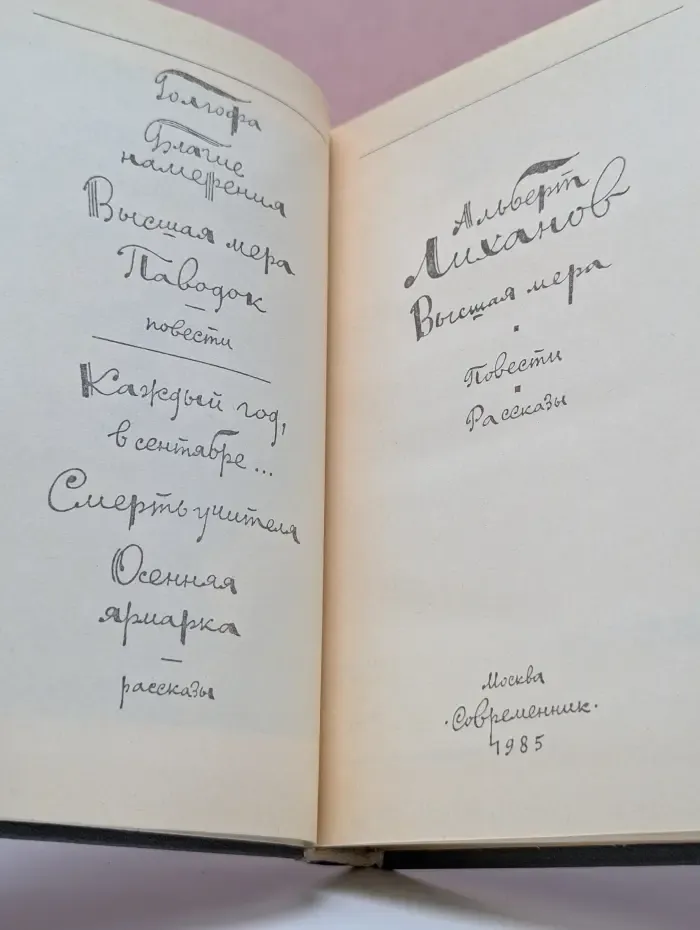 Голгофа
Благие
намерения
Высшая мера
Паводок
—
повести
Каждый год,
в сентябре...
Смерть учителя
Осенняя
ярмарка
—
рассказы
Альберт
Лиханов
Высшая мера
Повести
Рассказы
Москва
·Современник·
1985